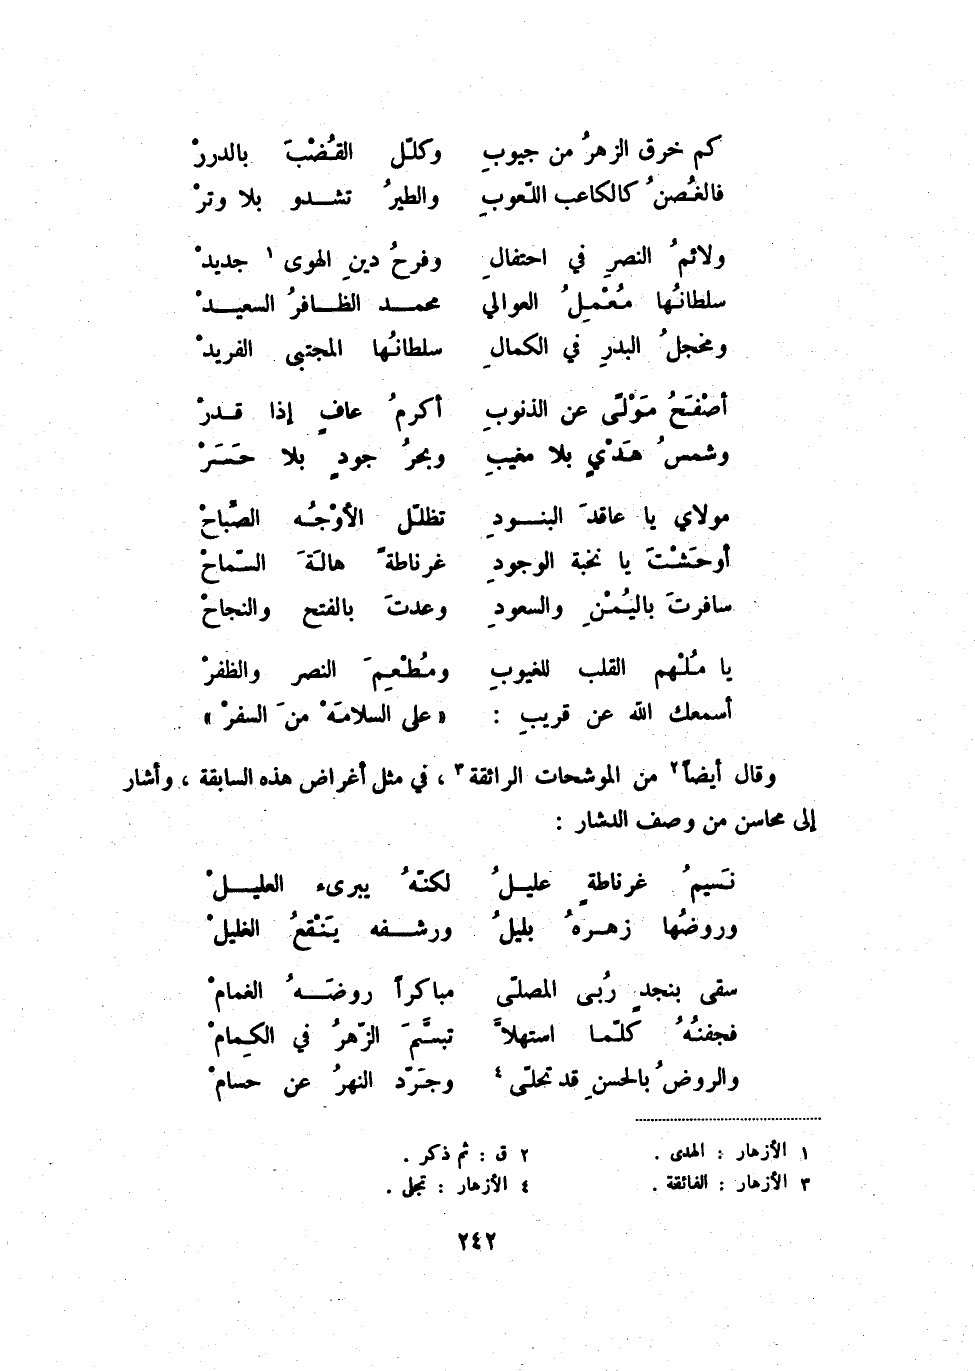 كم خرق الزهرُ من جيوبِ وكلّل القُضْبَ بالدررْ
فالغُصنُ كالكاعب اللّعوبِ والطيرُ تشدو بلا وترْ
ولائمُ النصرِ في احتفالِ وفرحُ دينِ الهوى ١ جديدْ
سلطانُها مُعْمِلُ العوالي محمد الظافرُ السعيدْ
ومخجلُ البدرِ في الكمالِ سلطانُها المجتبى الفريدْ
أصْفَحُ مَوْلًى عن الذنوبِ أكرمُ عافٍ إذا قدرْ
وشمسُ هَدْيٍ بلا مغيبِ وبحرُ جودٍ بلا حَسَرْ
مولاي يا عاقدَ البنودِ تظلّل الأوْجُه الصّباحْ
أوحَشْتَ يا نخبة الوجودِ غرناطةً هالَةَ السّماحْ
سافرتَ باليُمْنِ والسعودِ وعدتَ بالفتح والنجاحْ
يا مُلْهم القلب للغيوبِ ومُطْعِمَ النصر والظفرْ
أسمعك الله عن قريبِ : « على السلامَهْ منَ السفرْ »
وقال أيضاً٢ من الموشحات الرائقة٣ ، في مثل أغراض هذه السابقة ، وأشار
إلى محاسن من وصف الدشار :
نَسيمُ غرناطةٍ عليلُ لكنّهُ يبرىء العليلْ
وروضُها زهرهُ بليلُ ورشفه يَنْقعُ الغليلْ
سقى بنجدٍ رُبى المصلّى مباكراً روضَهُ الغمامْ
فجفنُهُ كلّما استهلاَّ تبسَّمَ الزّهرُ في الكِمامْ
والروضُ بالحسنِ قد تحلّى ٤ وجَرّد النهرُ عن حسامْ
١ الأزهار : الهدى .
٢ ق : ثم ذكر .
٣ الأزهار : الفائقة .
٤ الأزهار : تجلى .
٢٤٢